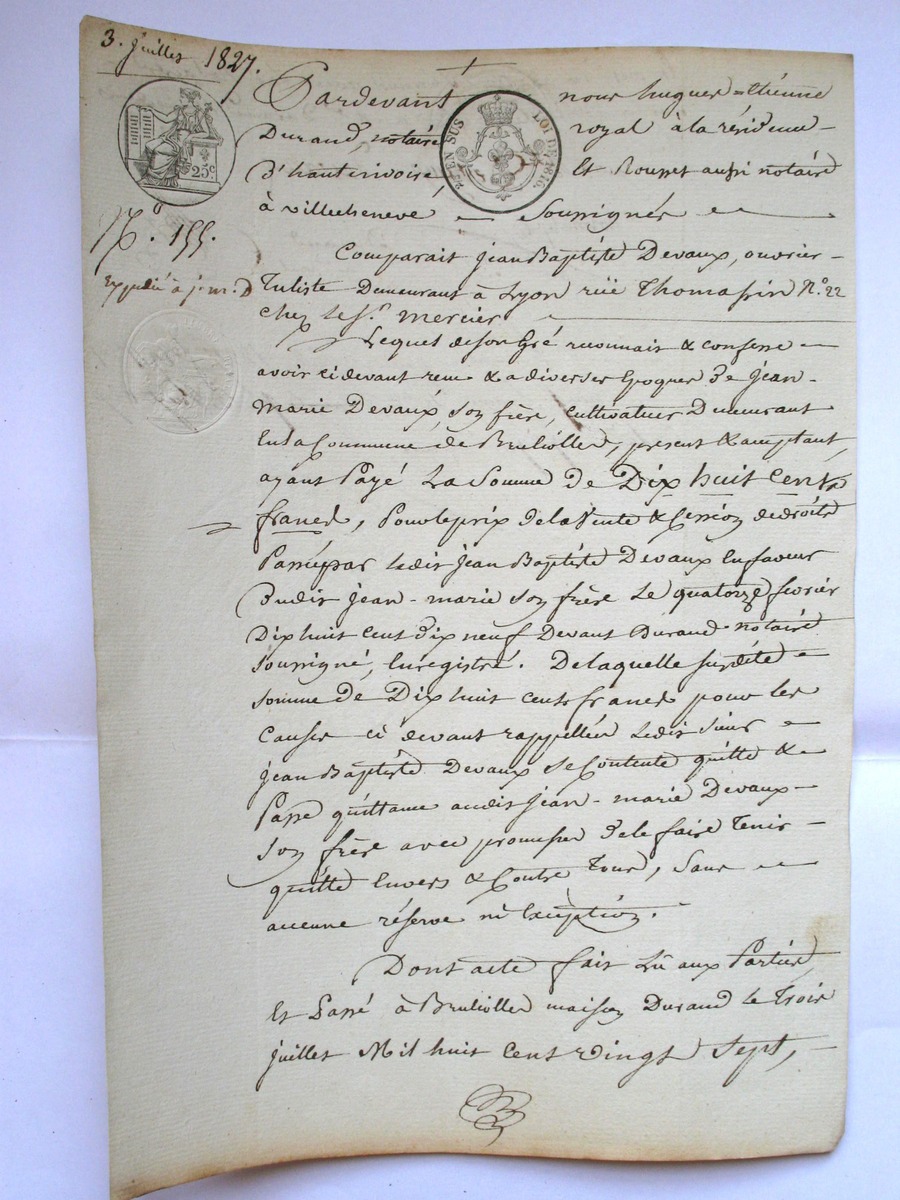 3. juillet 1827.
Pardevant nous hugues=Etienne
Durand, notaire royal à la résidence
d'hauterivoire, Et Rousset aussi notaire
à villecheneve Soussignés
25 c
EN SUS LOI DE 1816.
N.º 155.
Expédié à j. m. D
Comparait jean Baptiste Devaux, ouvrier
Tuliste Demeurant à Lyon rüe Thomassin N.º 22
chez le Sr. mercier
Lequel de son Gré reconnait & confesse
avoir ci devant recu & a diverses Epoques De jean
marie Devaux, son frère, cultivateur Demeurant
En la Commune de Brulliolles, present & acceptant,
ayant Payé La Somme de Dix huit Cents
francs, Pour le prix de la vente & Cession de droits
Passée par ledit jean Baptiste Devaux En faveur
Dudit jean-marie son frère Le quatorze fevrier
Dix huit cent dix neuf Devant Durand notaire
soussigné, Enregistré. De laquelle susdite
somme de Dix huit cents francs pour les
Causes ci devant rappellées ledit sieur
jean Baptiste Devaux se Contente quitte &
Passe quittance audit jean-marie Devaux
son frère avec promesse de le faire tenir
quitte Envers & Contre Tous, sans
aucune réserve ni Exception.
Dont acte fait Lû aux Parties
Et Passé à Brulliolles maison Durand le Trois
juillet Mil huit Cent vingt sept,